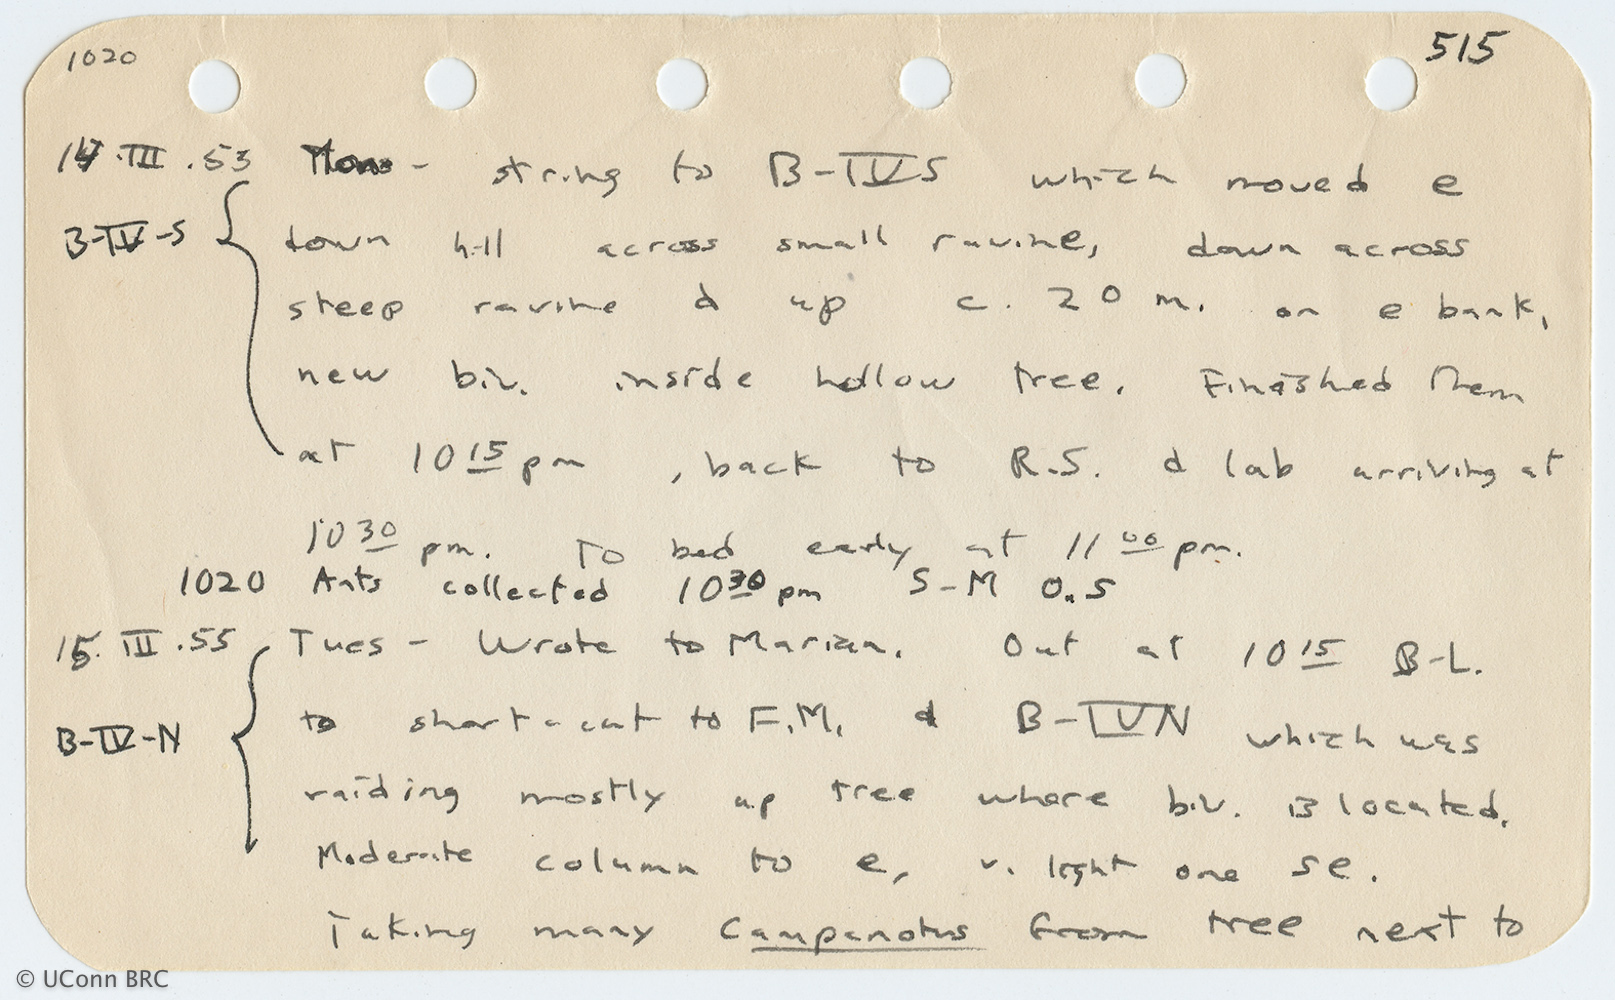 1020
515
14.III.53 Mons - string to B-IVS which moved e
B-IV-S down hill across small ravine, down across
steep ravine d up c. 20 m. on e bank,
new biv. inside hollow tree. Finished them
at 10 15 pm, back to R.S. d lab arriving at
10 30 pm. To bed early at 11 00 pm.
1020 Ants collected 10 30 pm S-M 0.5
15.III.55 Tues - Wrote to Marian. Out at 10 15 B-L.
to short-cut to F.M. d B-IVN which was
B-IV-N
raiding mostly up tree where biv. is located.
Moderate column to e, v. light one se.
Taking many Campanotus from tree next to
© UConn BRC